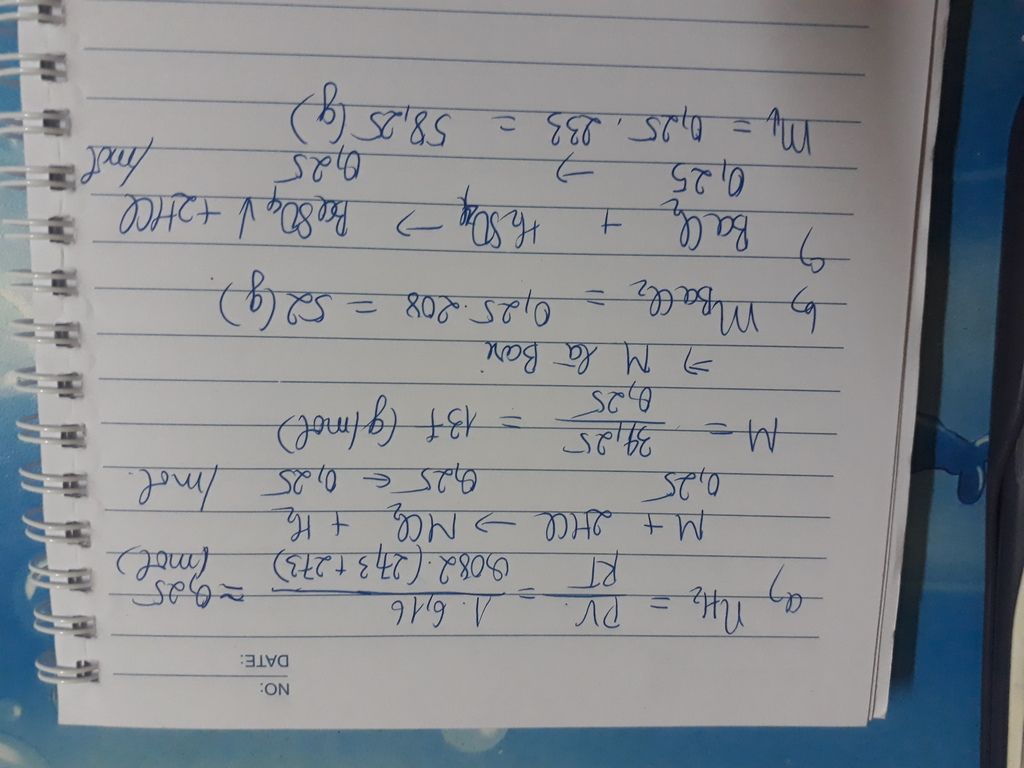 NO:
DATE:
a, nH₂ = PV/RT = 1.6,16/0,082.(27,3+273) ≈ 0,25 (mol)
M + 2HCl → MCl₂ + H₂
0,25 0,25 ← 0,25 /mol.
M = 34,25/0,25 = 137 (g/mol)
⇒ M là Bari
b, mBaCl₂ = 0,25.208 = 52 (g)
c,
BaCl₂ + H₂SO₄ → BaSO₄↓ + 2HCl
0,25 → 0,25 /mol
m↓ = 0,25.233 = 58,25 (g)